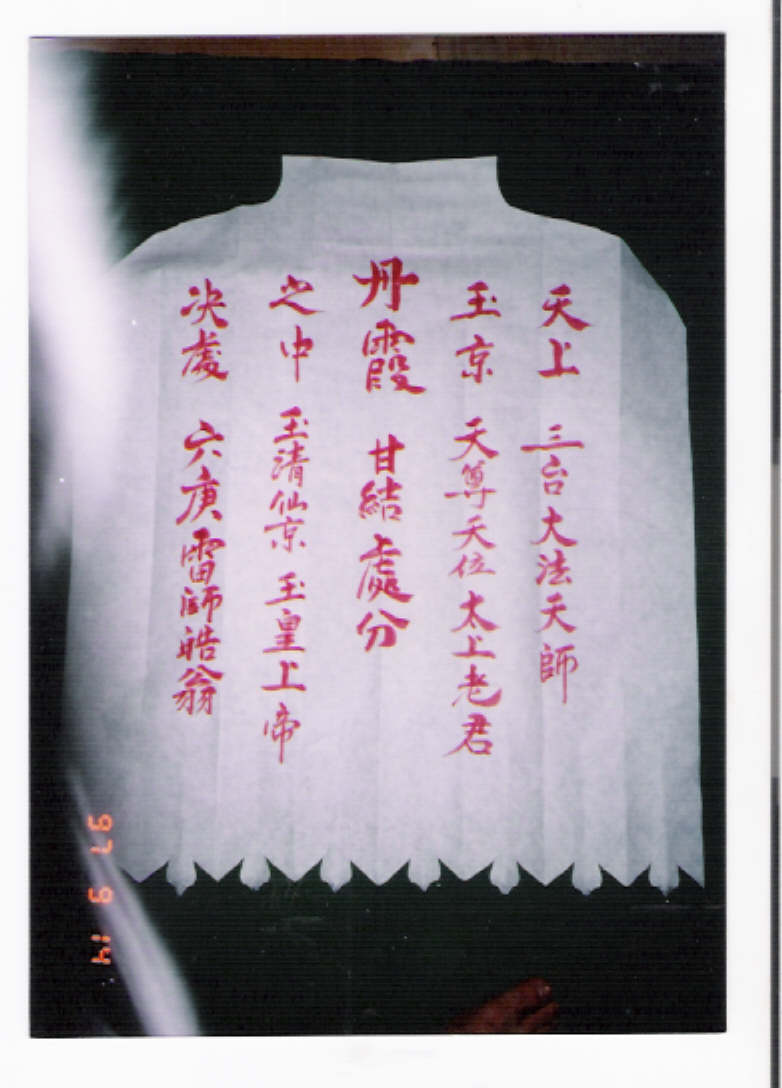 天上 三台大法天師
玉京 天尊天位太上老君
丹霞 甘結處分
之中 玉清仙京 玉皇上帝
決處 六庚雷師皓翁
97 9 14